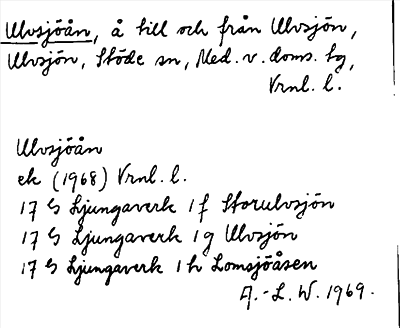 Ulvsjöån, å till och från Ulvsjön,
Ulvsjön, Stöde sn, Med. v. doms. tg,
Vrnl. l.
Ulvsjöån
ek (1968) Vrnl. l.
17 G Ljungaverk 1 f Storulvsjön
17 G Ljungaverk 1 g Ulvsjön
17 G Ljungaverk 1 h Lomsjöåsen
A.-L. W. 1969.